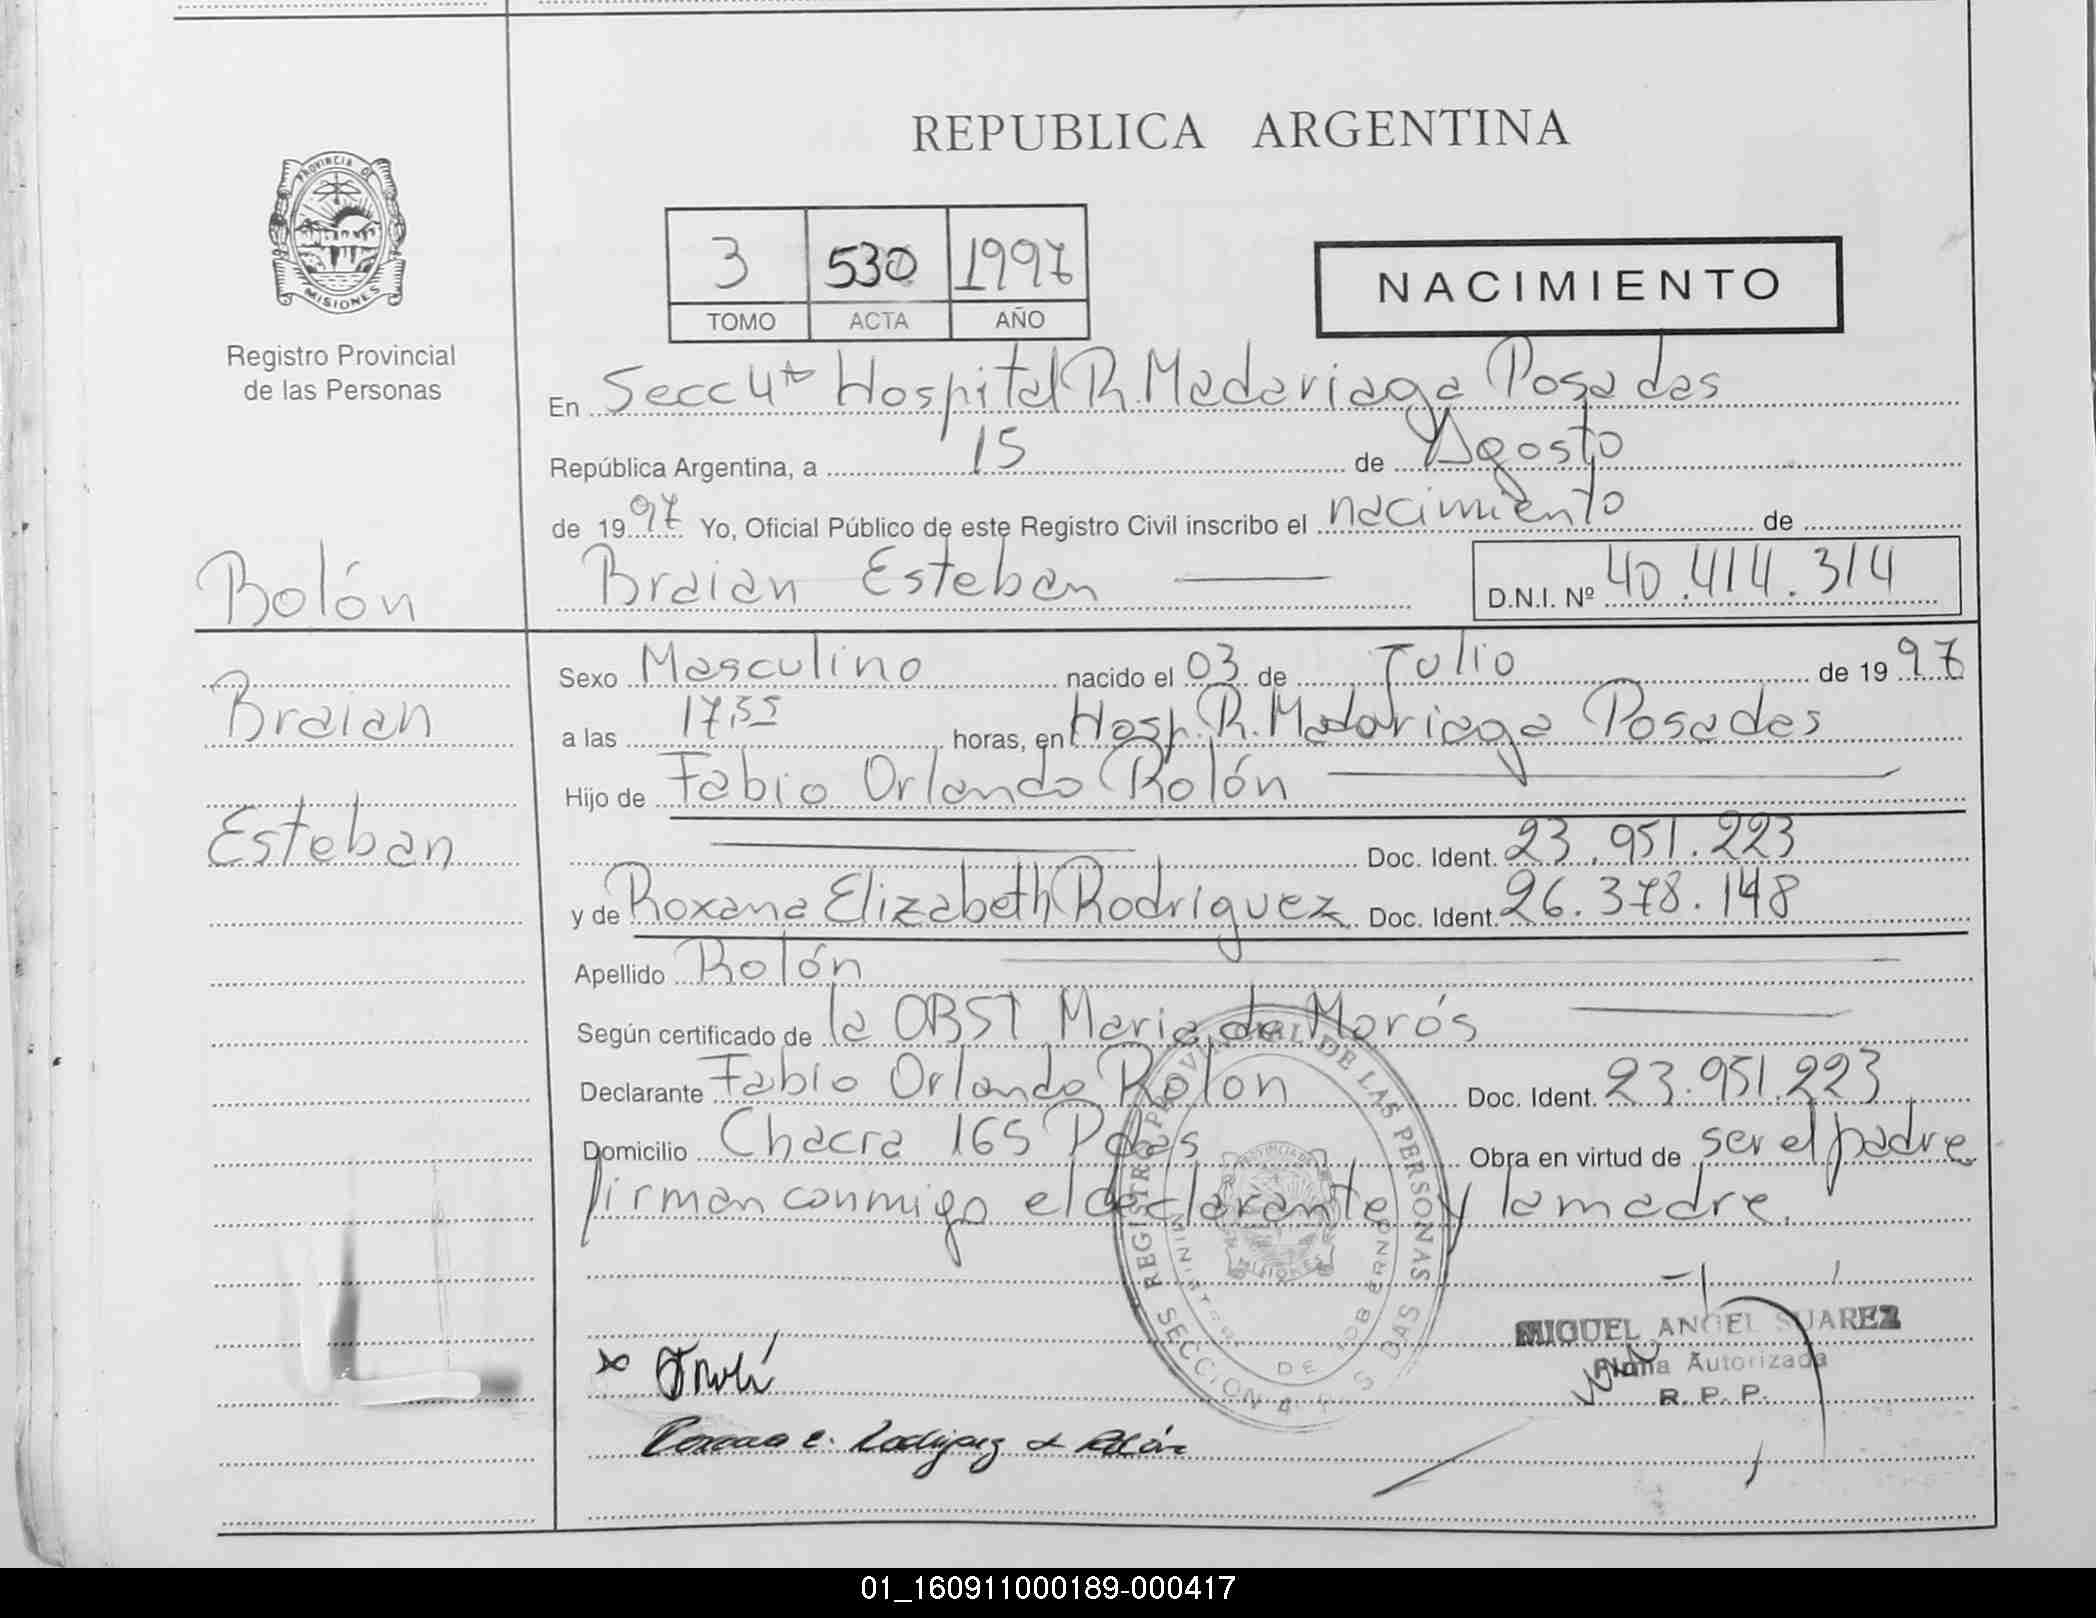 REPUBLICA ARGENTINA
PROVINCIA DE
MISIONES
Registro Provincial
de las Personas
3 530 1997
TOMO ACTA AÑO
NACIMIENTO
En Secc 4ta Hospital R. Madariaga Posadas
República Argentina, a 15 de Agosto
de 1997 Yo, Oficial Público de este Registro Civil inscribo el nacimiento de
Braian Esteban D.N.I. Nº 40.414.314
Rolón
Braian
Esteban
Sexo Masculino nacido el 03 de Julio de 1997
a las 17,55 horas, en Hosp. R. Madariaga Posadas
Hijo de Fabio Orlando Rolón
Doc. Ident. 23.951.223
y de Roxana Elizabeth Rodriguez Doc. Ident. 26.378.148
Apellido Rolón
Según certificado de la OBST Maria de Morós
Declarante Fabio Orlando Rolon Doc. Ident. 23.951.223
Domicilio Chacra 165 Pdas Obra en virtud de ser el padre
firman conmigo el declarante y la madre.
REGISTRO PROVINCIAL DE LAS PERSONAS
MISIONES
MIGUEL ANGEL SUAREZ
Firma Autorizada
R. P. P.
Roxana E. Rodriguez d Rolón
01_160911000189-000417